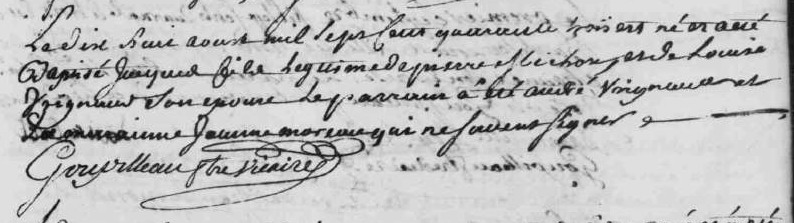 Le dix huit aoust mil sept cent quarante trois est né et a été
Baptisé Jacques fils legitime de pierre et de Louise
Vrignaud son epouse le parrain a été Vrignaud et
La marainne Jeanne moreau qui ne scavent signer
ptre vicaire